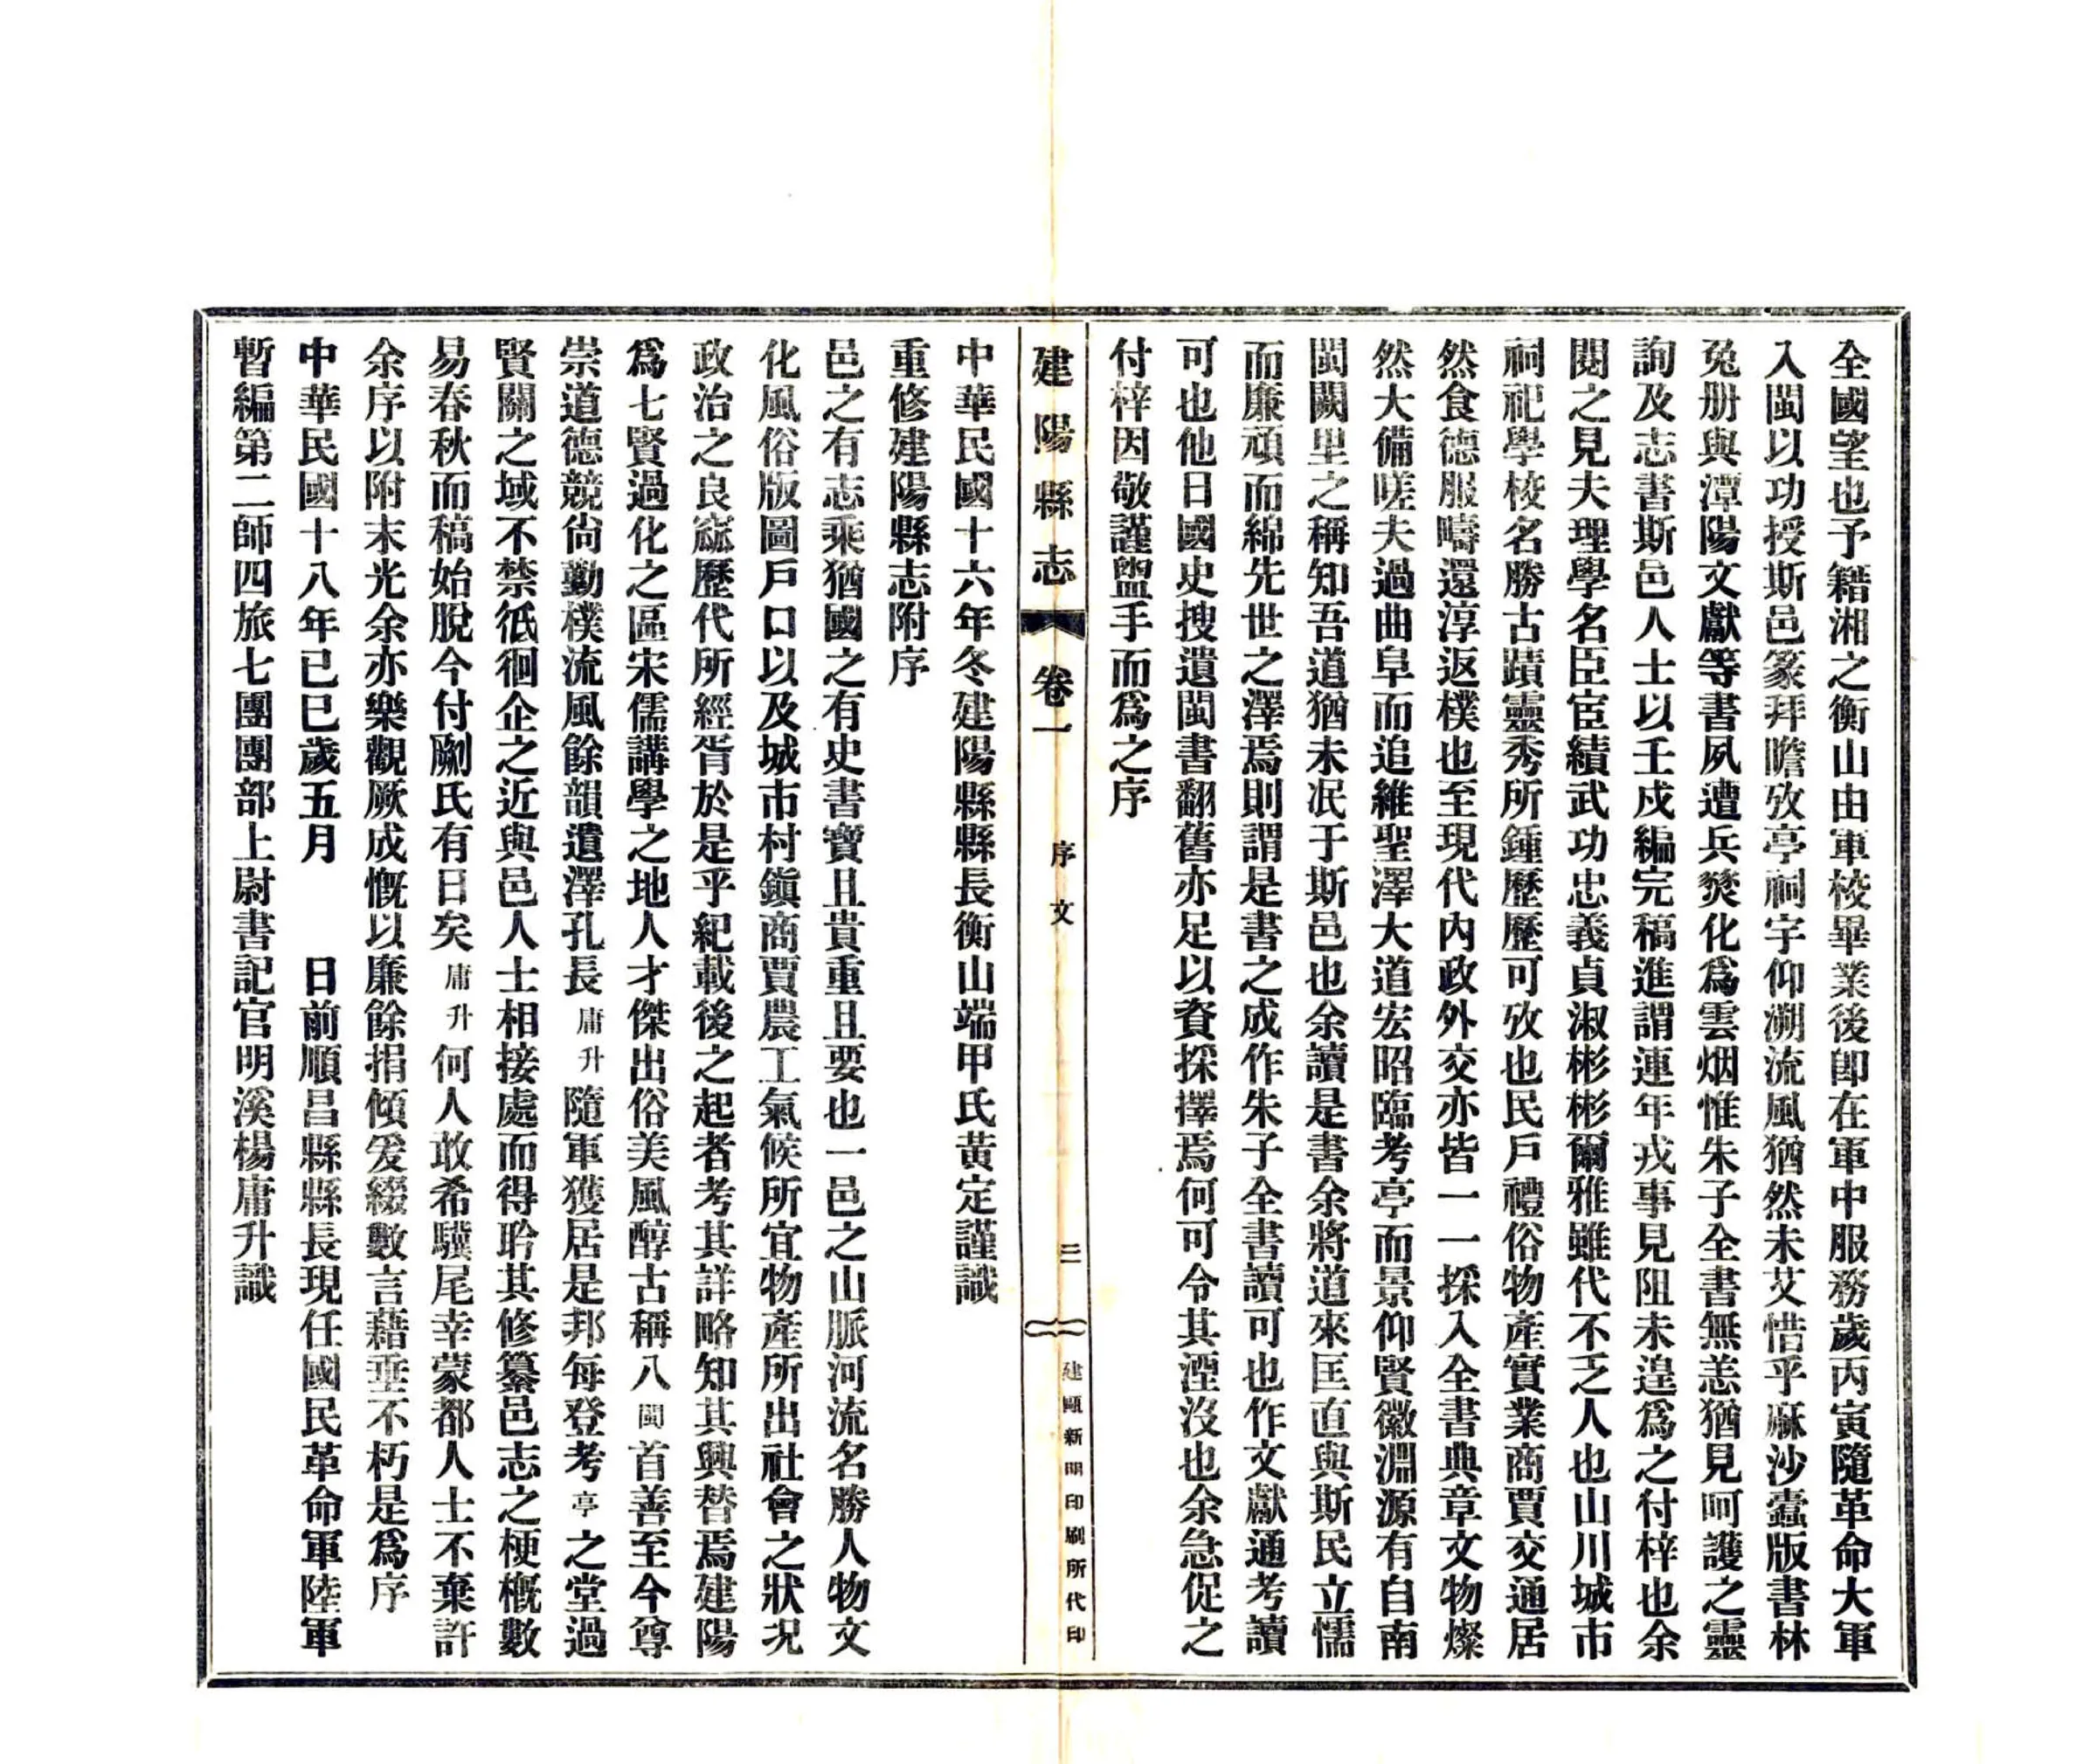 全國望也予籍湘之衡山由軍校畢業後卽在軍中服務歲丙寅隨革命大軍
入閩以功授斯邑篆拜瞻攷亭祠宇仰溯流風猶然未艾惜乎麻沙蠹版書林
兔册與潭陽文獻等書夙遭兵燹化爲雲烟惟朱子全書無恙猶見呵護之靈
詢及志書斯邑人士以壬戍編完稿進謂連年戎事見阻未遑爲之付梓也余
閱之見夫理學名臣宦績武功忠義貞淑彬彬爾雅雖代不乏人也山川城市
祠祀學校名勝古蹟靈秀所鍾歷歷可攷也民戶禮俗物產實業商賈交通居
然食德服疇還淳返樸也至現代內政外交亦皆一一採入全書典章文物燦
然大備嗟夫過曲阜而追維聖澤大道宏昭臨考亭而景仰賢徽淵源有自南
閩闕里之稱知吾道猶未泯于斯邑也余讀是書余將道來匡直與斯民立懦
而廉頑而綿先世之澤焉則謂是書之成作朱子全書讀可也作文獻通考讀
可也他日國史搜遺閩書翻舊亦足以資採擇焉何可令其湮沒也余急促之
付梓因敬謹盥手而爲之序
建陽縣志 卷一 序文 三 建甌新聞印刷所代印
中華民國十六年冬建陽縣縣長衡山端甲氏黃定謹識
重修建陽縣志附序
邑之有志乘猶國之有史書寶且貴重且要也一邑之山脈河流名勝人物文
化風俗版圖戶口以及城市村鎭商賈農工氣候所宜物產所出社會之狀况
政治之良窳歷代所經胥於是乎紀載後之起者考其詳略知其興替焉建陽
爲七賢過化之區宋儒講學之地人才傑出俗美風醇古稱八閩首善至今尊
崇道德競尙勤樸流風餘韻遺澤孔長庸升隨軍獲居是邦每登考亭之堂過
賢關之域不禁徘徊企之近與邑人士相接處而得聆其修纂邑志之梗槪數
易春秋而稿始脫今付劂氏有日矣庸升何人敢希驥尾幸蒙都人士不棄許
余序以附末光余亦樂觀厥成慨以廉餘捐傾爰綴數言藉垂不朽是爲序
中華民國十八年已巳歲五月 日前順昌縣縣長現任國民革命軍陸軍
暫編第二師四旅七團團部上尉書記官明溪楊庸升識